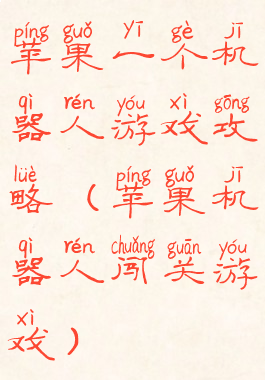 píng guǒ yī gè jī
苹果一个机
qì rén yóu xì gōng
器人游戏攻
lüè píng guǒ jī
略（苹果机
qì rén chuǎng guān yóu
器人闯关游
xì
戏）